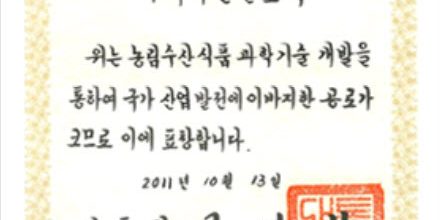 위는 농림수산식품 과학기술 개발을
통하여 국가 산업 발전에 이바지한 공로가
크므로 이에 표창합니다.
2011년 10월 13일
대통